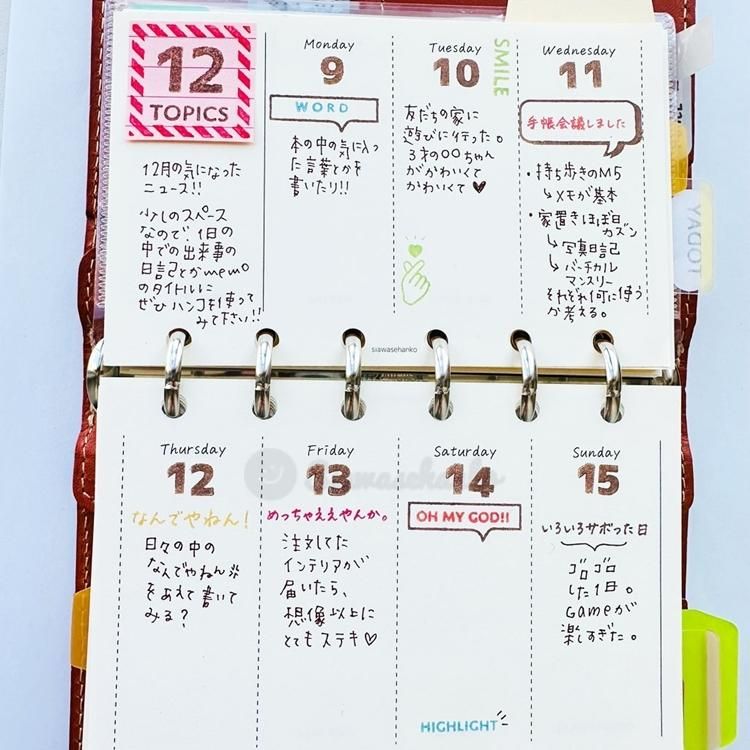 12
TOPICS
12月の気になった
ニュース!!
少しのスペース
なので、1日の
中での出来事の
日記とかmemo
のタイトルに
ぜひハンコを使って
みて下さい!!
Monday
9
WORD
本の中の気に入っ
た言葉とかを
書いたり!!
Tuesday
10
SMILE
友だちの家に
遊びに行った。
3才の〇〇ちゃん
がかわいくて
かわいくて♥
Wednesday
11
手帳会議しました
・持ち歩きのM5
↳メモが基本
・家置きほぼ日
カズン
↳写真日記
↳バーチカル
マンスリー
それぞれ何に使う
か考える。
TODAY
siawasehanko
Thursday
12
なんでやねん!
日々の中の
なんでやねん
をあえて書いて
みる?
Friday
13
めっちゃええやんか。
注文してた
インテリアが
届いたら、
想像以上に
とてもステキ♡
Saturday
14
OH MY GOD!!
HIGHLIGHT
Sunday
15
いろいろサボった日
ゴロゴロ
した1日。
Gameが
楽しすぎた。
siawasehanko